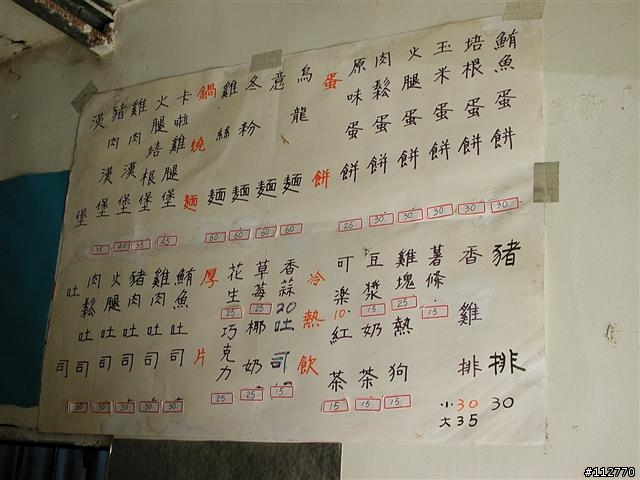 漢堡
豬肉漢堡
35
雞肉漢堡
40
火腿培根堡
35
卡啦雞腿堡
45
鍋燒麵
雞絲麵
60
冬粉麵
60
意麵
60
烏龍麵
60
蛋餅
原味蛋餅
25
肉鬆蛋餅
30
火腿蛋餅
30
玉米蛋餅
30
培根蛋餅
30
鮪魚蛋餅
30
吐司
肉鬆吐司
30
火腿吐司
30
豬肉吐司
30
雞肉吐司
30
鮪魚吐司
30
厚片
花生
25
巧克力
25
草莓
25
椰奶
25
香蒜
20
吐司
15
冷熱飲
可樂
10
紅茶
15
豆漿
15
奶茶
15
雞塊
25
熱狗
15
薯條
15
香雞排
小30
大35
豬排
30
#112770